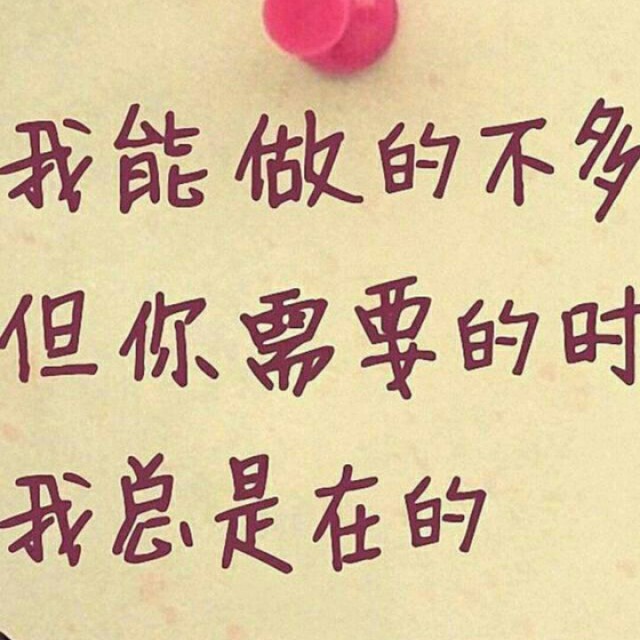 我能做的不多
但你需要的时
我总是在的